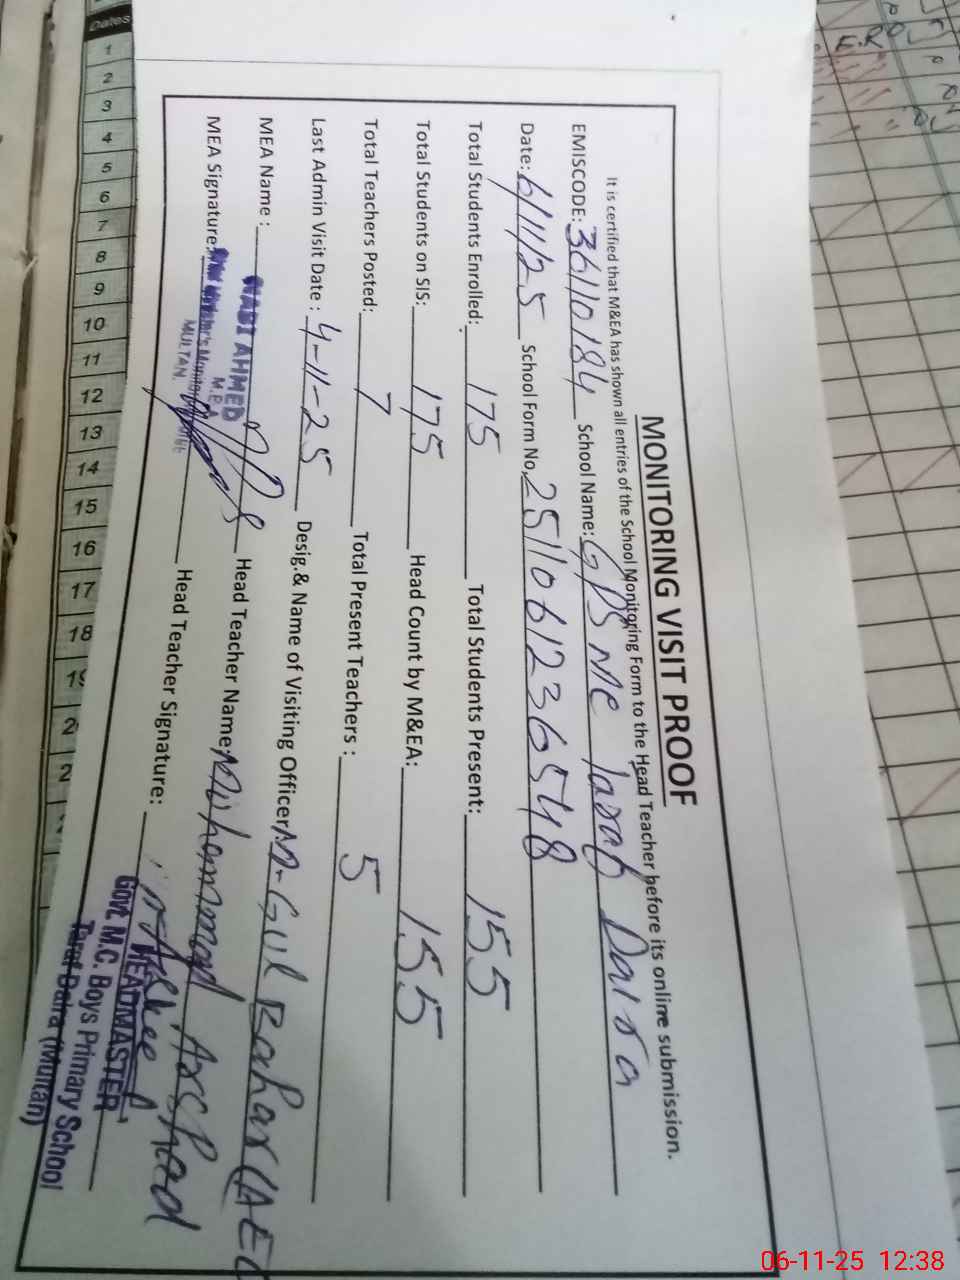 MONITORING VISIT PROOF
It is certified that M&EA has shown all entries of the School Monitoring Form to the Head Teacher before its online submission.
EMISCODE: 36110184 School Name: GPS MC Taraf Daira
Date: 6/11/25 School Form No. 2511061236548
Total Students Enrolled: 175 Total Students Present: 155
Total Students on SIS: 175 Head Count by M&EA: 155
Total Teachers Posted: 7 Total Present Teachers : 5
Last Admin Visit Date : 4-11-25 Desig.& Name of Visiting Officer: M-Gul Bahar (AEO
MEA Name : AHMED Head Teacher Name: Muhammad Arshad
MEA Signature: Head Teacher Signature:
MULTAN.
HEADMASTER
Govt. M.C. Boys Primary School
Taraf Daira (Multan)
Dates
1
2
3
4
5
6
7
8
9
10
11
12
13
14
15
16
17
18
E.R
06-11-25 12:38